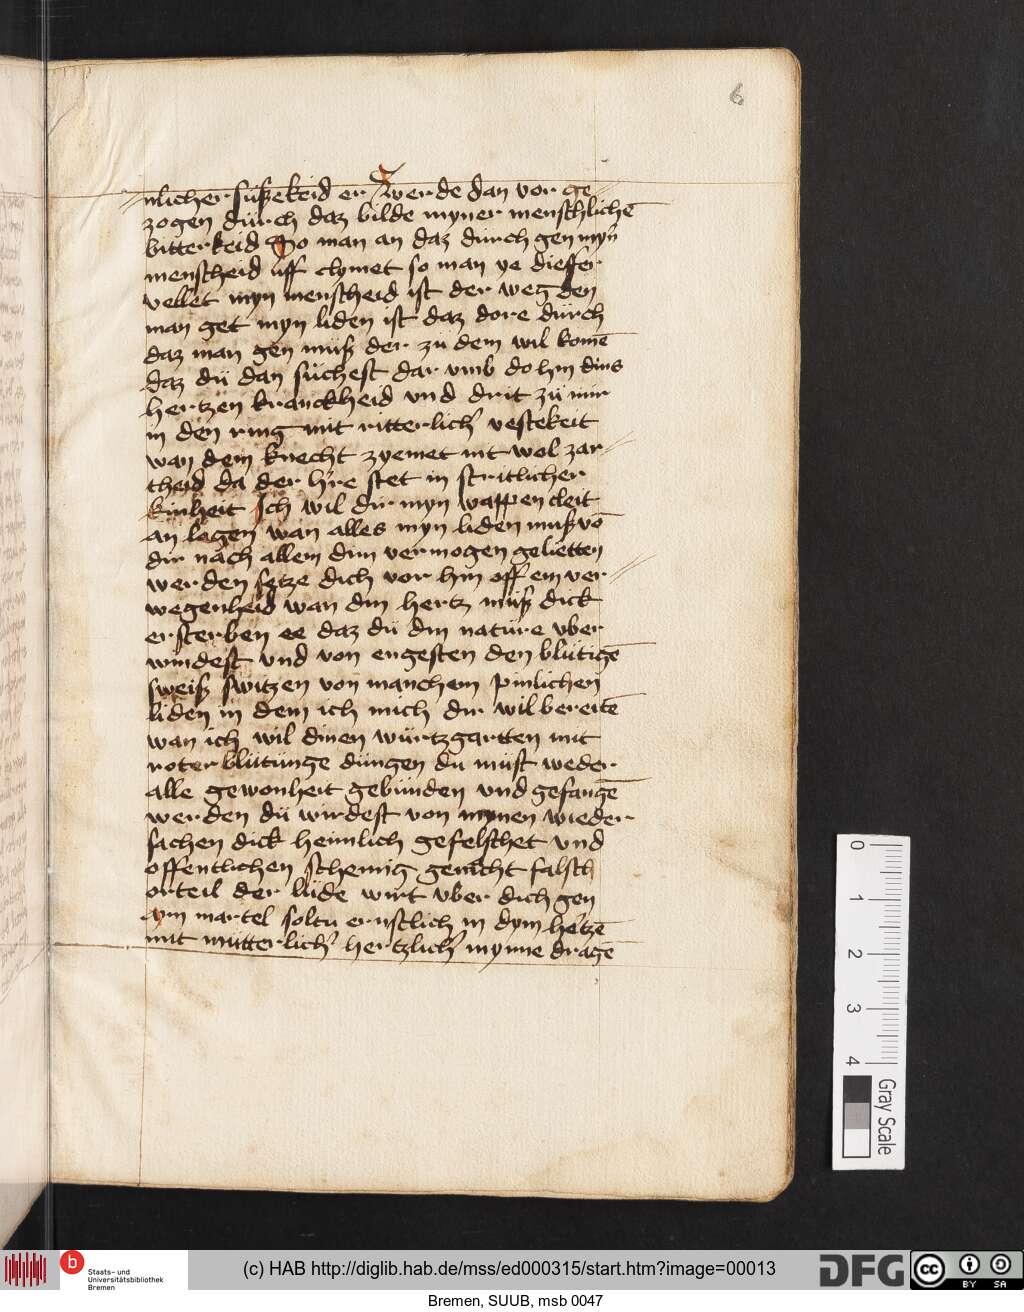 6
nlicher sußekeid er werde dan vor ge
zogen dürch daz bilde myner menschlichē
bitterkeid So man an daz durch gen myn
menscheid uff clymet so man ye dieffer
vellet myn menscheid ist der weg den
man get myn liden ist daz dore dürch
daz man gen müß der zu dem wil komē
daz dü dan süchest dar vmb do hin dins
hertzen kranckheid vnd drit zü mir
in den ring mit ritterlicher vestekeit
wan dem knecht zyemet nit wol zar
theid da der hre stet in stritlicher
künheit Ich wil dir myn wappen cleit
an legen wan alles myn liden muß vō
dir nach allem dim vermogen gelietten
werden setze dich vor hin off ein ver
wegenheid wan din hertz müß dick
ersterben ee daz dü din natüre vber
windest vnd von engesten den blütigē
sweiß switzen von manchem pinlichen
liden in dem ich mich dir wil bereitē
wan ich wil dinen würtzgartten mit
roter blütünge düngen du müst weder
alle gewonheit gebünden vnd gefangē
werden dü wirdest von mynen wieder
sachen dick heimlich gefelschet vnd
offentlichen schemig gemcht falsch
orteil der lüde wirt vber dich gen
myn martel soltu ernstlich in dym hertzē
mit mütterlicher hertzlicher mynne dragē
0
1
2
3
4
Gray Scale
b
Staats- und
Universitätsbibliothek
Bremen
(c) HAB http://diglib.hab.de/mss/ed000315/start.htm?image=00013
DFG
cc
BY SA
Bremen, SUUB, msb 0047